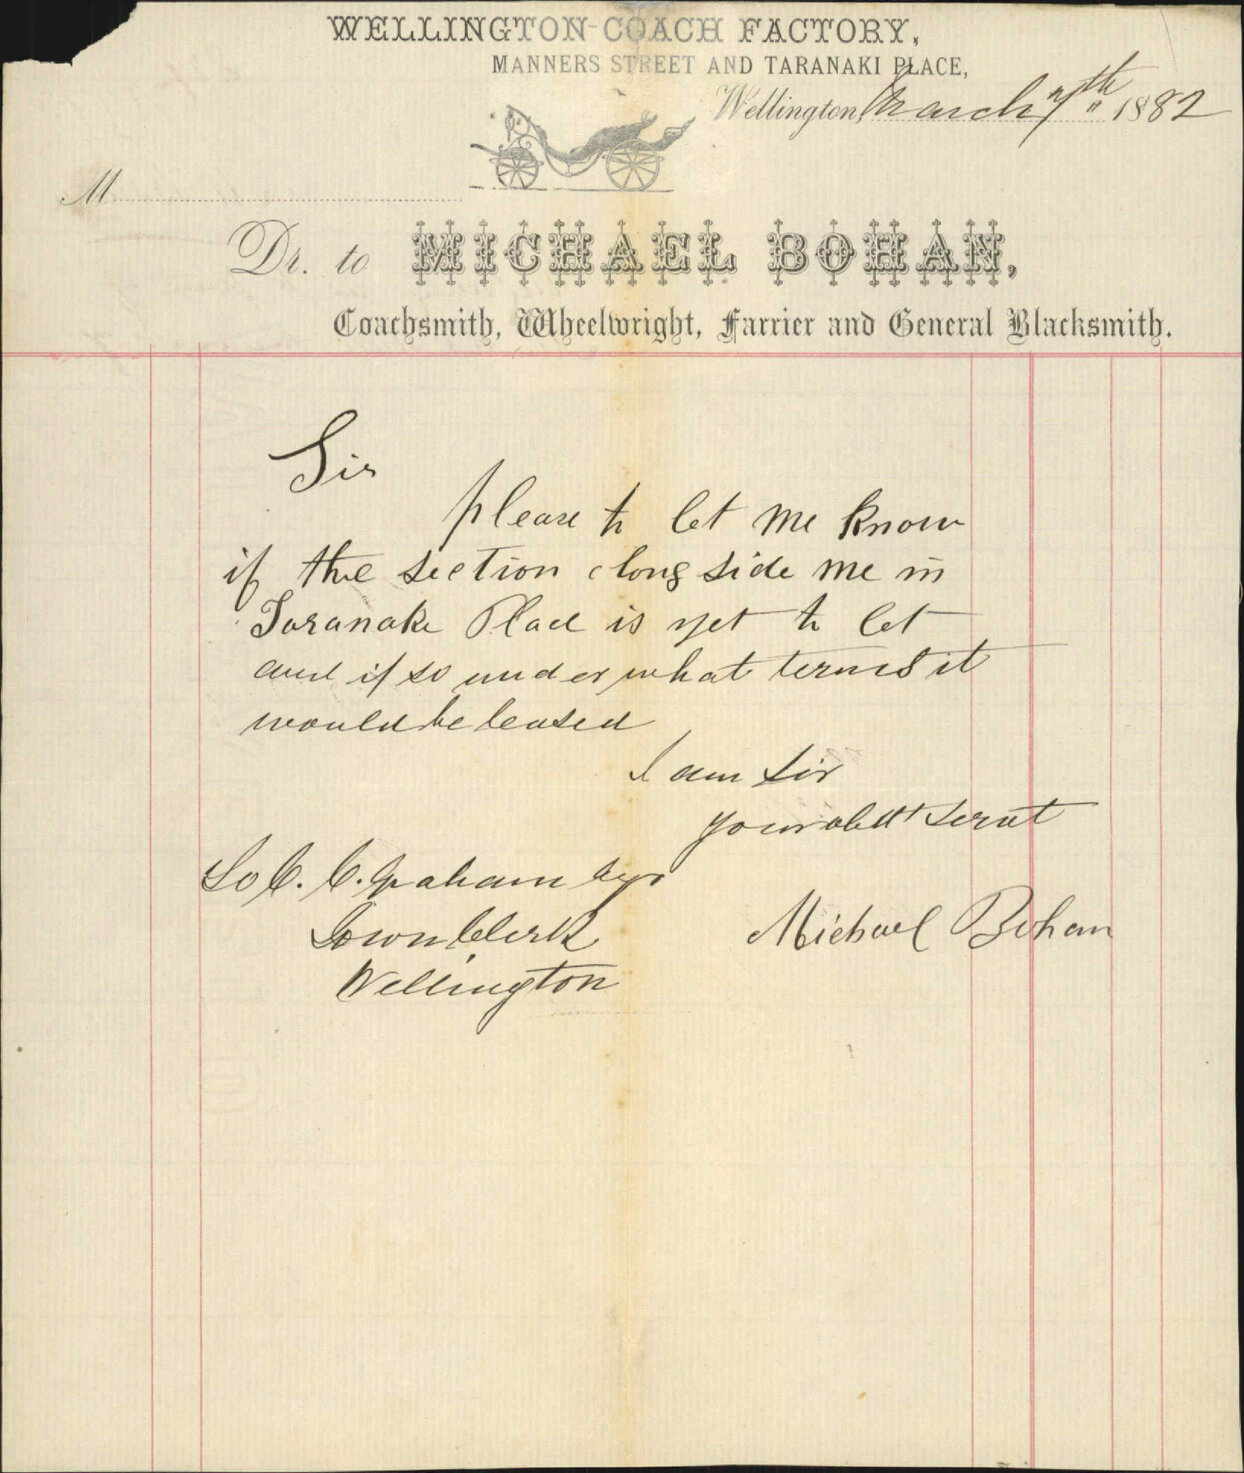 WELLINGTON COACH FACTORY,
MANNERS STREET AND TARANAKI PLACE,
Wellington, March 7th 1882
M
Dr. to MICHAEL BOHAN,
Coachsmith, Wheelwright, Farrier and General Blacksmith.
Sir
please to let me know
if the section along side me in
Taranake Place is yet to let
and if so under what terms it
would be leased
I am Sir
your obdt servt
To C. C. Graham Esqr
Town Clerk
Michael Bohan
Wellington